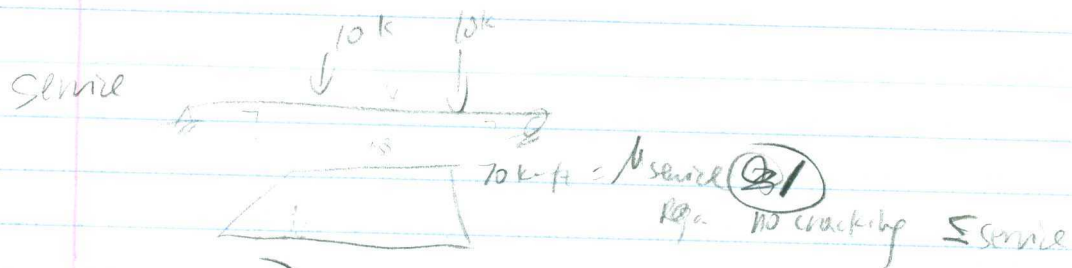 10k 10k
Service
7
70 k-ft = M service 1
no cracking ≤ service